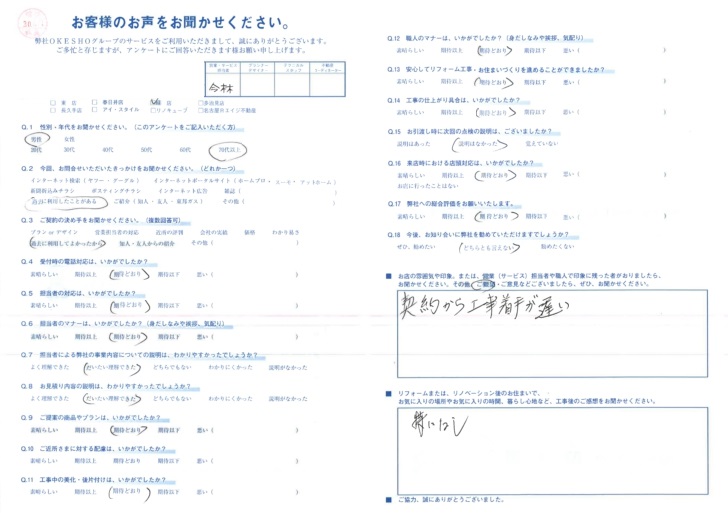 お客様のお声をお聞かせください。
弊社OKESHOグループのサービスをご利用いただきまして、誠にありがとうございます。
ご多忙と存じますが、アンケートにご回答いただきます様お願い申し上げます。
営業・サービス
今林
東店 春日井店
アイ・スタイル リノキューブ 名古屋のエイジ不動産
Q.1 性別・年代をお聞かせください。(このアンケートをご記入いただく方)
男性 女性
30代 40代 50代 60代 70代以上
Q.2 今回、お問合せいただいたきっかけをお聞かせください。(どれか一つ)
インターネット検索(ヤフー・グーグル) インターネットポータルサイト(ホームプロ・
新聞折込みチラシ ポスティングチラシ インターネット広告 雑誌( )
過去に利用したことがある ご紹介(知人・友人・東邦ガス) その他( )
Q.3 ご契約の決め手をお聞かせください。(複数回答可)
プラン or デザイン 営業担当者の対応 近所の評判 会社の実績 価格 わかり易さ
過去に利用してよかったから 知人・友人からの紹介 その他( )
Q.4 受付時の電話対応は、いかがでしたか?
素晴らしい 期待以上 期待どおり 期待以下 悪い( )
Q.5 担当者の対応は、いかがでしたか?
素晴らしい 期待以上 期待どおり 期待以下 悪い( )
Q.6 担当者のマナーは、いかがでしたか?(身だしなみや挨拶、気配り)
素晴らしい 期待以上 期待どおり 期待以下 悪い( )
Q.7 担当者による弊社の事業内容についての説明は、わかりやすかったでしょうか?
よく理解できた だいたい理解できた どちらでもない わかりにくかった 説明がなかった
Q.8 お見積り内容の説明は、わかりやすかったでしょうか?
よく理解できた だいたい理解できた どちらでもない わかりにくかった 説明がなかった
Q.9 ご提案の商品やプランは、いかがでしたか?
素晴らしい 期待以上 期待どおり 期待以下 悪い( )
Q.10 ご近所さまに対する配慮は、いかがでしたか?
素晴らしい 期待以上 期待どおり 期待以下 悪い( )
Q.11 工事中の美化・後片付けは、いかがでしたか?
素晴らしい 期待以上 期待どおり 期待以下 悪い( )
Q.12 職人のマナーは、いかがでしたか?(身だしなみや挨拶、気配り)
素晴らしい 期待以上 期待どおり 期待以下 悪い( )
Q.13 安心してリフォーム工事・お住まいづくりを進めることができましたか?
素晴らしい 期待以上 期待どおり 期待以下 悪い( )
Q.14 工事の仕上がり具合は、いかがでしたか?
素晴らしい 期待以上 期待どおり 期待以下 悪い( )
Q.15 お引渡し時に次回の点検の説明は、ございましたか?
説明はあった 説明はなかった 覚えていない
Q.16 来店時における店舗対応は、いかがでしたか?
素晴らしい 期待以上 期待どおり 期待以下 悪い( )
お店に行ったことはない
Q.17 弊社への総合評価をお願いいたします。
素晴らしい 期待以上 期待どおり 期待以下 悪い( )
Q.18 今後、お知り合いに弊社を勧めていただけますでしょうか?
ぜひ、勧めたい どちらとも言えない 勧めたくない
■ お店の雰囲気や印象、または、営業(サービス)担当者や職人で印象に残った者がおりましたら、
お聞かせください。その他、ご要望・ご意見などございましたら、ぜひ、お聞かせください。
契約から工事着手が遅い
■ リフォームまたは、リノベーション後のお住まいで、
お気に入りの場所やお気に入りの時間、暮らし心地など、工事後のご感想をお聞かせください。
特になし
■ ご協力、誠にありがとうございました。